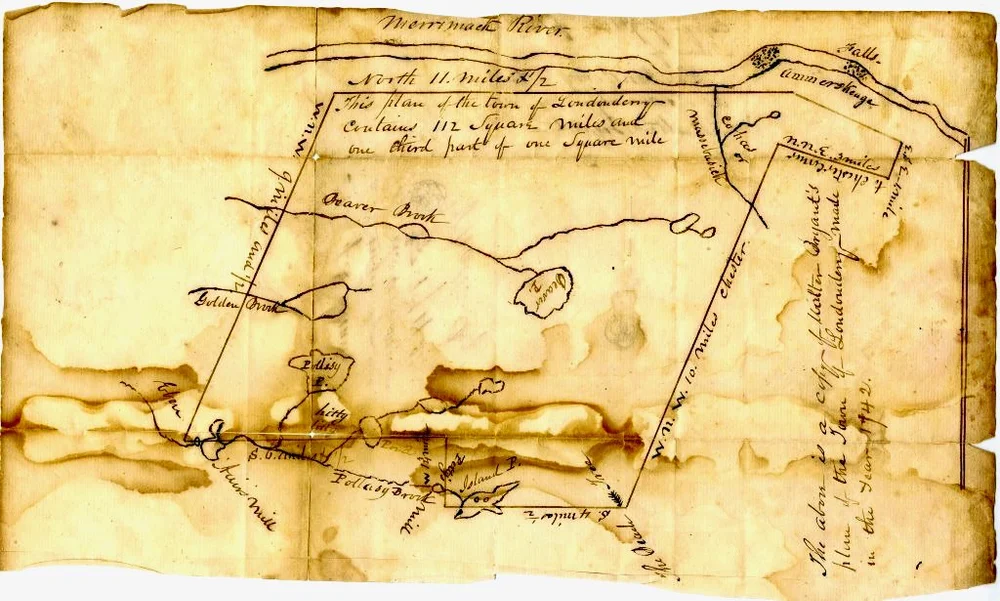 Merrimack River
Falls
Ammerskeage
North 11. Miles & 1/2
This plan of the town of Londonderry
contains 112 Square Miles and
one third part of one Square Mile
W.N.W. 9 Miles and 1/2
Massebesick
to Chester Line
3 Miles
E.S.E. 1 Mile
Beaver Brook
Beaver P.
Golden Brook
W.N.W. 10. Miles Chester
Pollisy P.
kitty
Mill
Pollisy Brook
Island P.
S. 4 Miles 1/2
Mill
The above is a copy of Matthew Bryant's
plan of the Town of Londonderry made
in the year 1742.